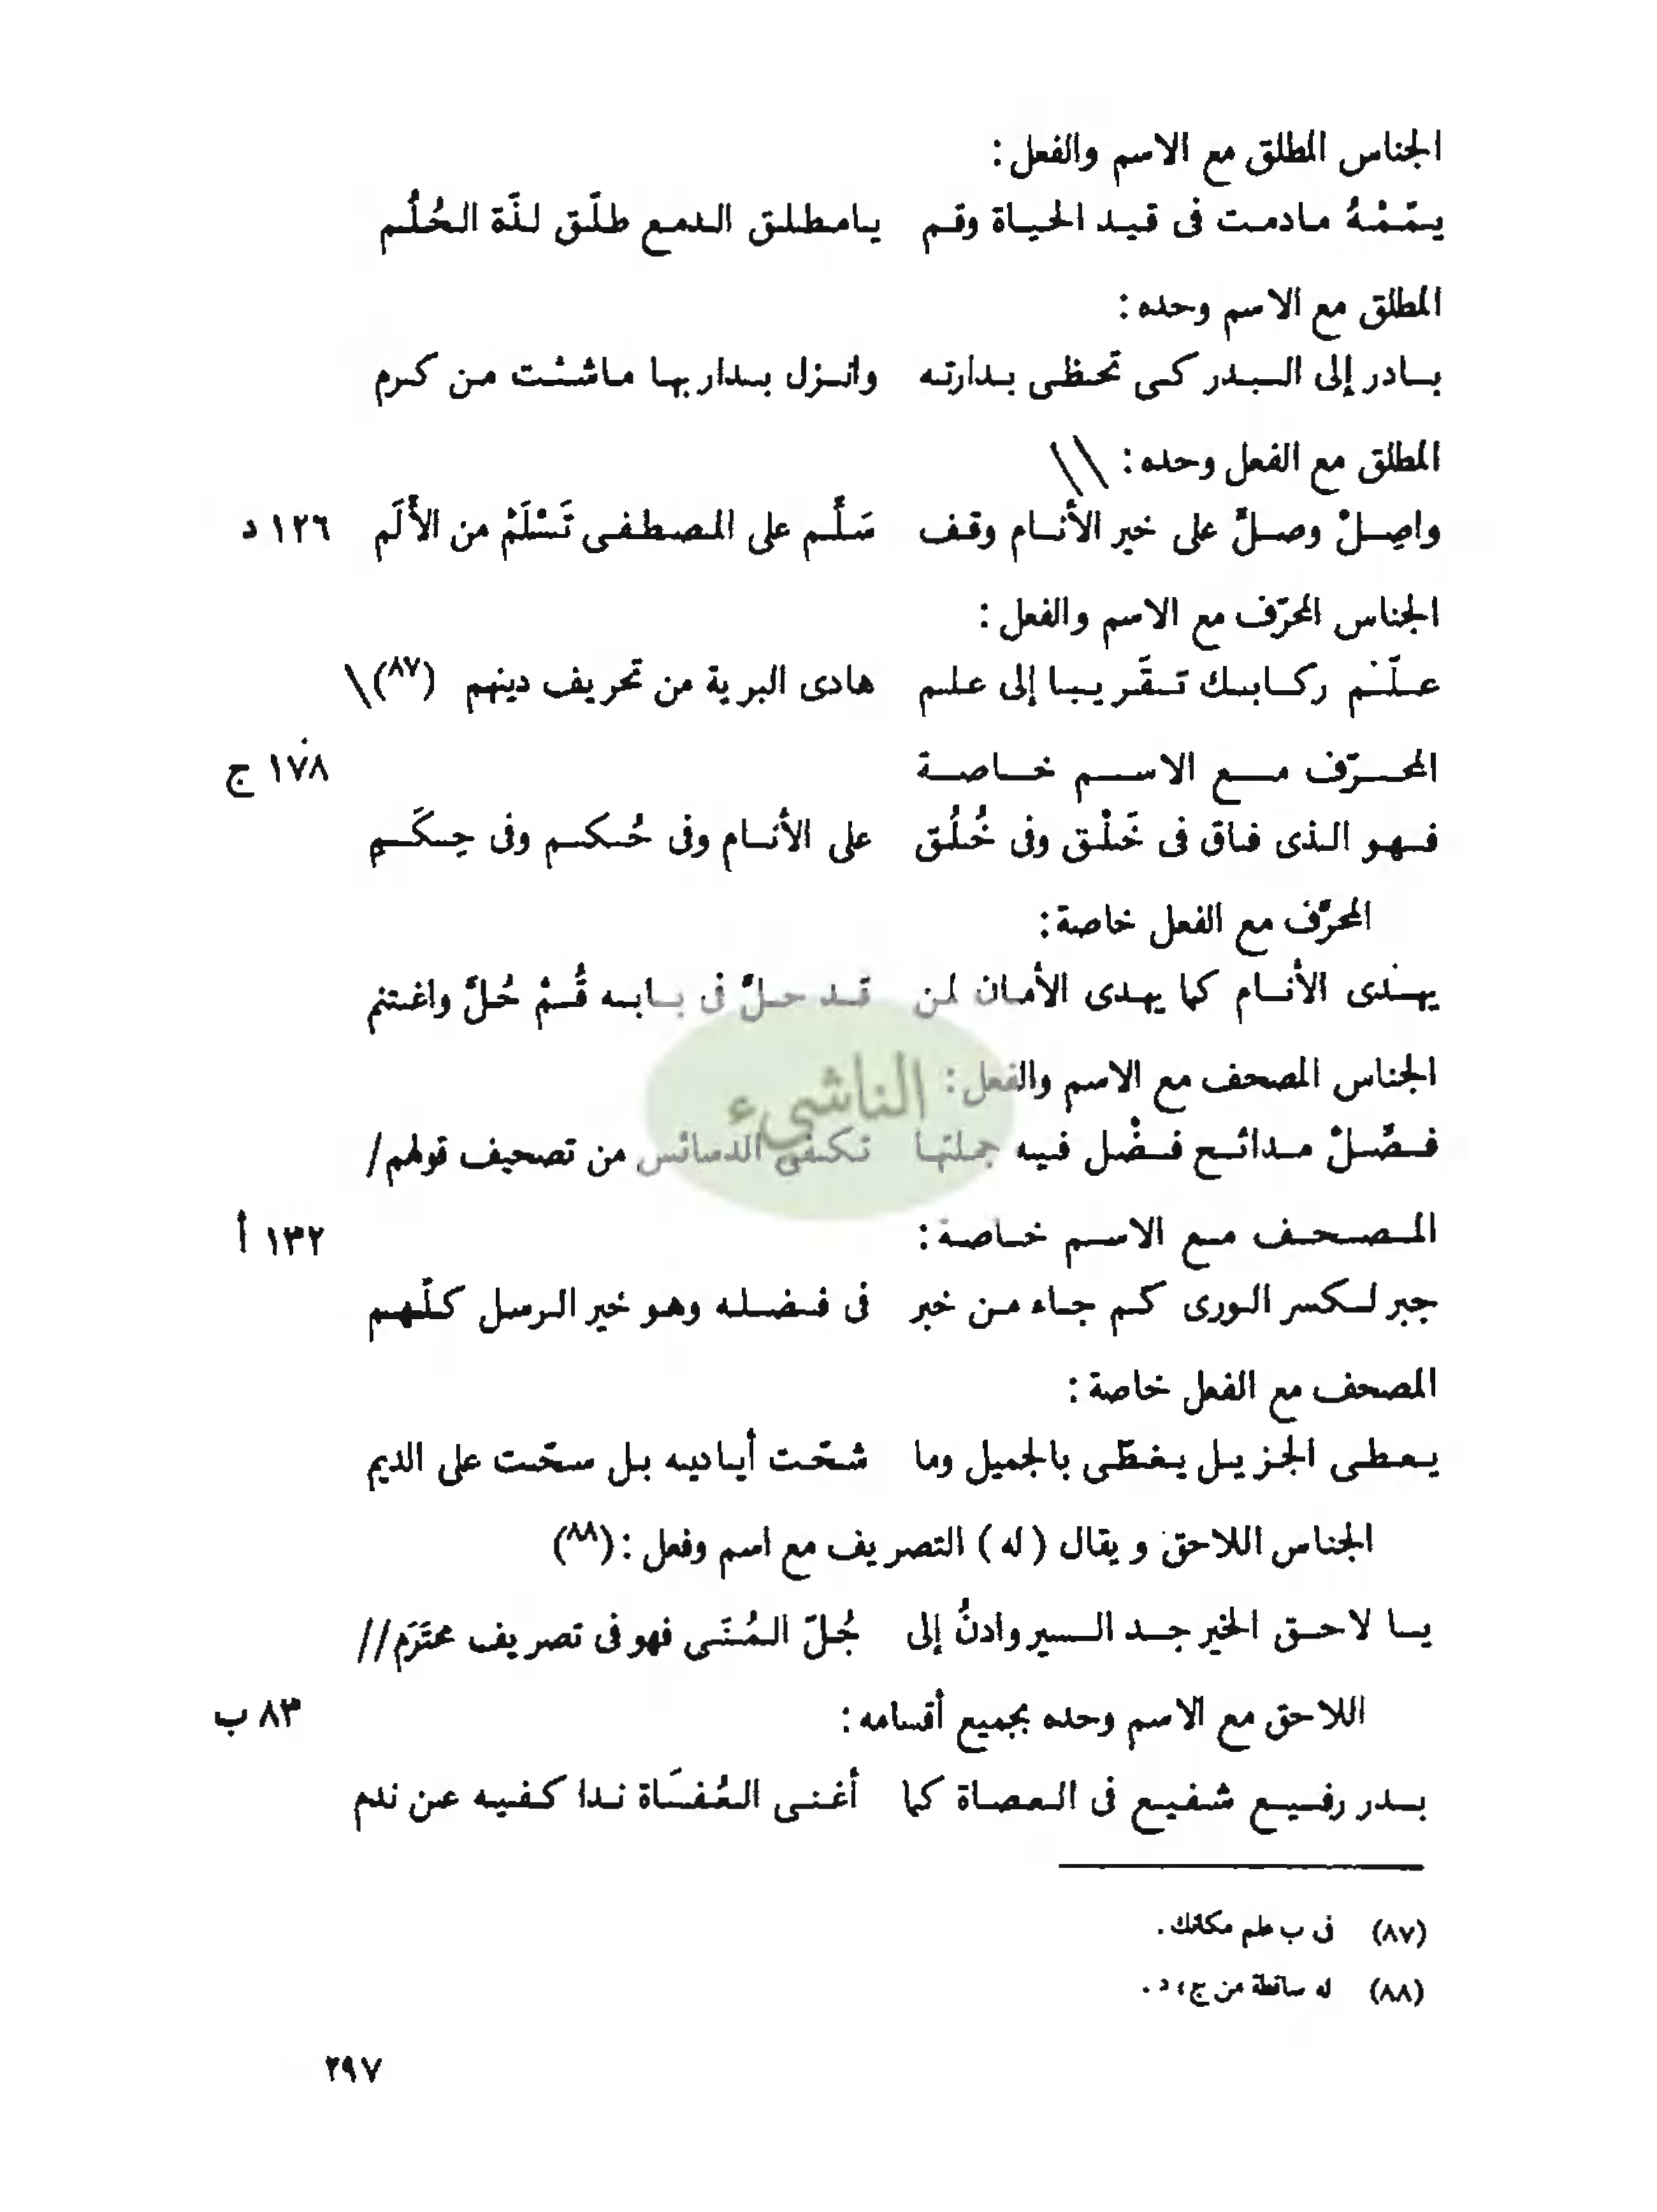 الجناس المطلق مع الاسم والفعل :
يمّمْهُ مادمت فى قيد الحياة وقم يامطلق الدمع طلّق لذّة الحُلُم
المطلق مع الاسم وحده :
بادر إلى البدر كى تحظى بدارته وانزل بدار بها ماشئت من كرم
المطلق مع الفعل وحده : \\
واصِلْ وصلِّ على خير الأنام وقف سَلِّم على المصطفى تَسْلَمْ من الأَلَم ١٢٦ د
الجناس المحرّف مع الاسم والفعل :
علّم ركابك تقَريبا إلى علم هادى البرية من تحريف دينهم (٨٧)\
المحرّف مع الاسم خاصة ١٧٨ ج
فهو الذى فاق فى خَلْق وفى خُلُق على الأنام وفى حُكم وفى حِكَمِ
المحرّف مع الفعل خاصة :
يهدى الأنام كما يهدى الأمان لمن قد حلّ فى بابه قُمْ حُلَّ واغتنم
الناشيء
الجناس المصحف مع الاسم والفعل :
فصِّلْ مدائح فضْل فيه جملتها تكفى الدسائس من تصحيف قولهم/
المصحف مع الاسم خاصة : ١٣٢ أ
جبر لكسر الورى كم جاء من خبر فى فضله وهو خير الرسل كلّهم
المصحف مع الفعل خاصة :
يعطى الجزيل يغطّى بالجميل وما شحّت أياديه بل سحّت على الديم
الجناس اللاحق ويقال (له) التصريف مع اسم وفعل : (٨٨)
يا لاحق الخير جد السير وادنُ إلى جُلّ المُنَى فهو فى تصريف محتَرَم//
اللاحق مع الاسم وحده بجميع أقسامه : ٨٣ ب
بدر رفيع شفيع فى العصاة كما أغنى العُفَاة ندا كفيه عن ندم
(٨٧) فى ب علم مكانك .
(٨٨) له ساقطة من ج ، د .
٢٩٧